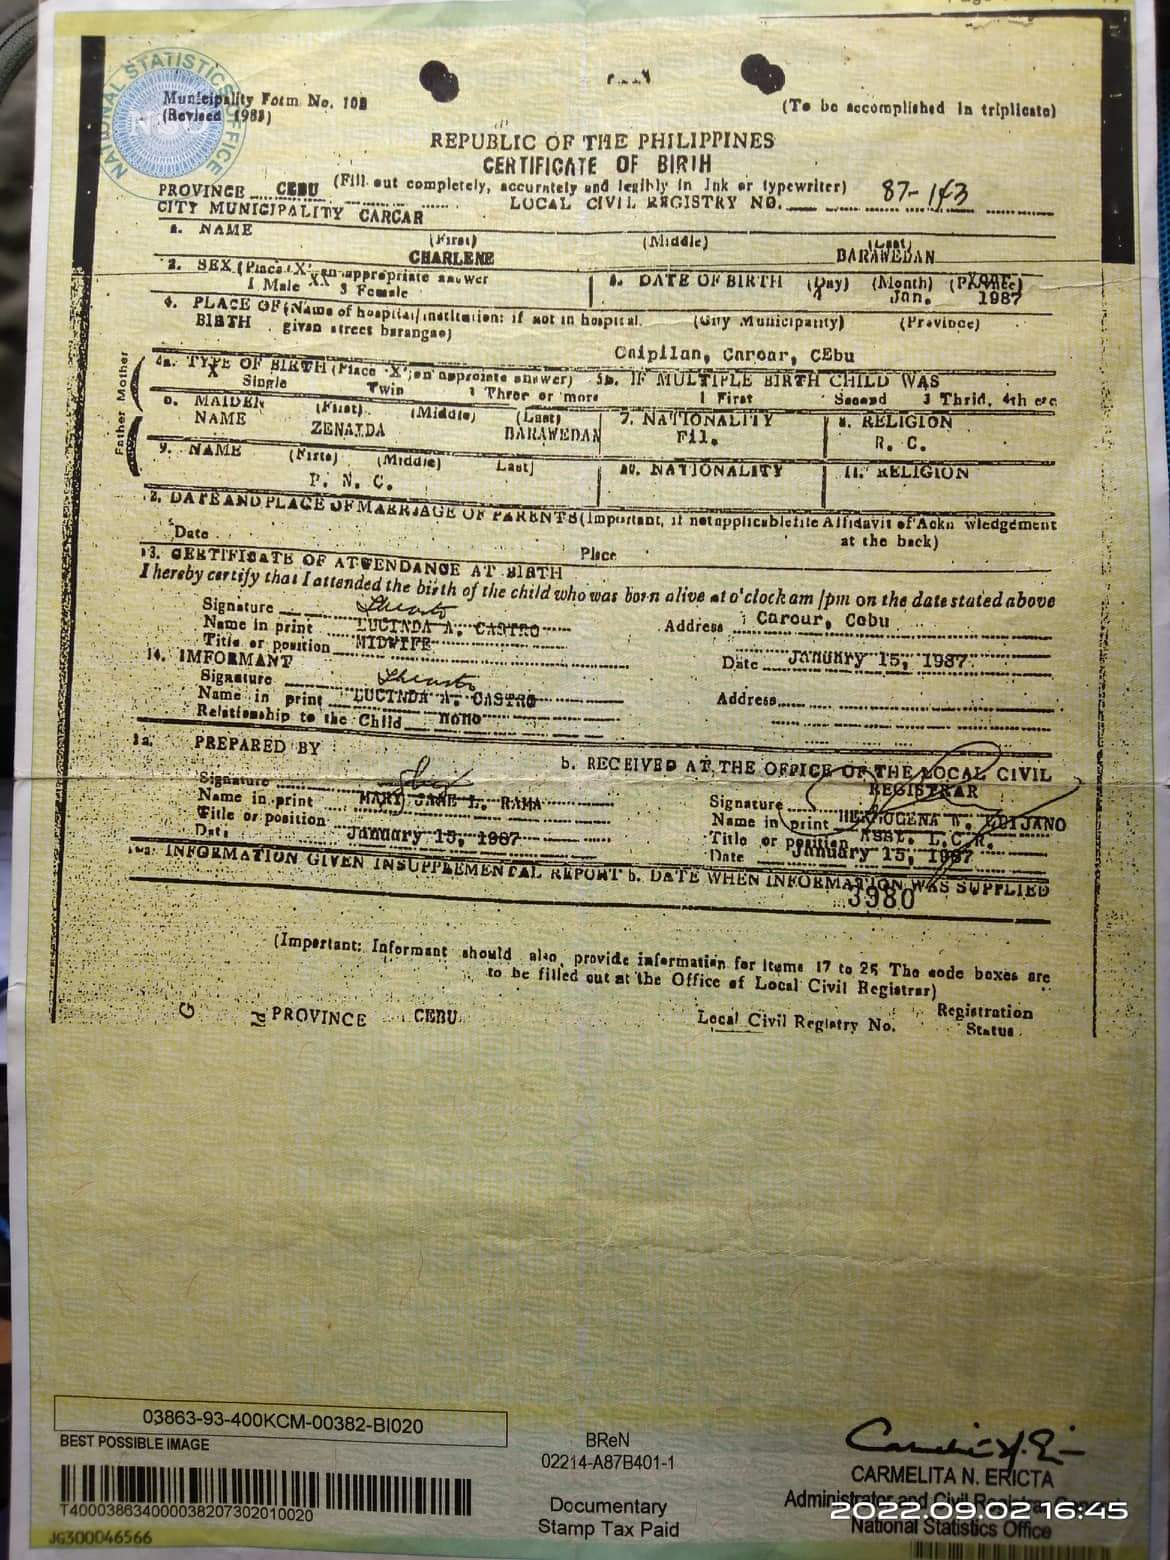 NATIONAL STATISTICS OFFICE
Municipality Form No. 102
(Revised 1983)
(To be accomplished in triplicate)
REPUBLIC OF THE PHILIPPINES
CERTIFICATE OF BIRTH
(Fill out completely, accurately and legibly in Ink or typewriter)
PROVINCE CEBU
LOCAL CIVIL REGISTRY NO. 87-143
CITY MUNICIPALITY CARCAR
1. NAME (First) (Middle) (Last)
CHARLENE BARAWEDAN
2. SEX (Place 'X' on appropriate answer
1 Male XX 3 Female
3. DATE OF BIRTH (Day) (Month)
Jan. 1987
4. PLACE OF (Name of hospital/institution: if not in hospital. (City Municipality) (Province)
BIRTH given street barangae)
Caipilan, Carcar, CEbu
TYPE OF BIRTH (Place 'X' on approinte answer) 5b. IF MULTIPLE BIRTH CHILD WAS
X Single Twin 3 Three or more 1 First Second 3 Thrid, 4th etc
Father Mother
6. MAIDEN (First) (Middle) (Last) 7. NATIONALITY 8. RELIGION
NAME ZENAIDA BARAWEDAN Fil. R. C.
9. NAME (Firts) (Middle) Last) 10. NATIONALITY 11. RELIGION
P. N. C.
2. DATE AND PLACE OF MARRIAGE OF PARENTS (Important, if not applicable file Affidavit of Ackn wledgement
at the back)
Date Place
13. CERTIFISATE OF ATTENDANCE AT BIRTH
I hereby certify that I attended the birth of the child who was born alive at o'clock am /pm on the date stated above
Signature
Name in print LUCINDA A. CASTRO
Address Carcar, Cebu
Title or position MIDWIFE
Date January 15, 1987
14. IMFORMANT
Signature
Name in print LUCINDA A. CASTRO
Address
Relationship to the Child none
PREPARED BY :
b. RECEIVED AT THE OFFICE OF THE LOCAL CIVIL
REGISTRAR
Signature
Name in print MARY JANE L. RAMA
Title or position
Date January 15, 1987
Signature
Name in print
Title or position ASST. L.C.R.
Date January 15, 1987
INFORMATION GIVEN IN SUPPLEMENTAL REPORT b. DATE WHEN INFORMATION WAS SUPPLIED
3980
(Important: Informant should also, provide information for items 17 to 25 The code boxes are
to be filled out at the Office of Local Civil Registrar)
PROVINCE CEBU
Local Civil Registry No.
Registration
Status
03863-93-400KCM-00382-BI020
BEST POSSIBLE IMAGE
T400038634000038207302010020
JG300046566
BReN
02214-A87B401-1
Documentary
Stamp Tax Paid
CARMELITA N. ERICTA
Administrator and Civil Registrar General
National Statistics Office
2022.09.02 16:45